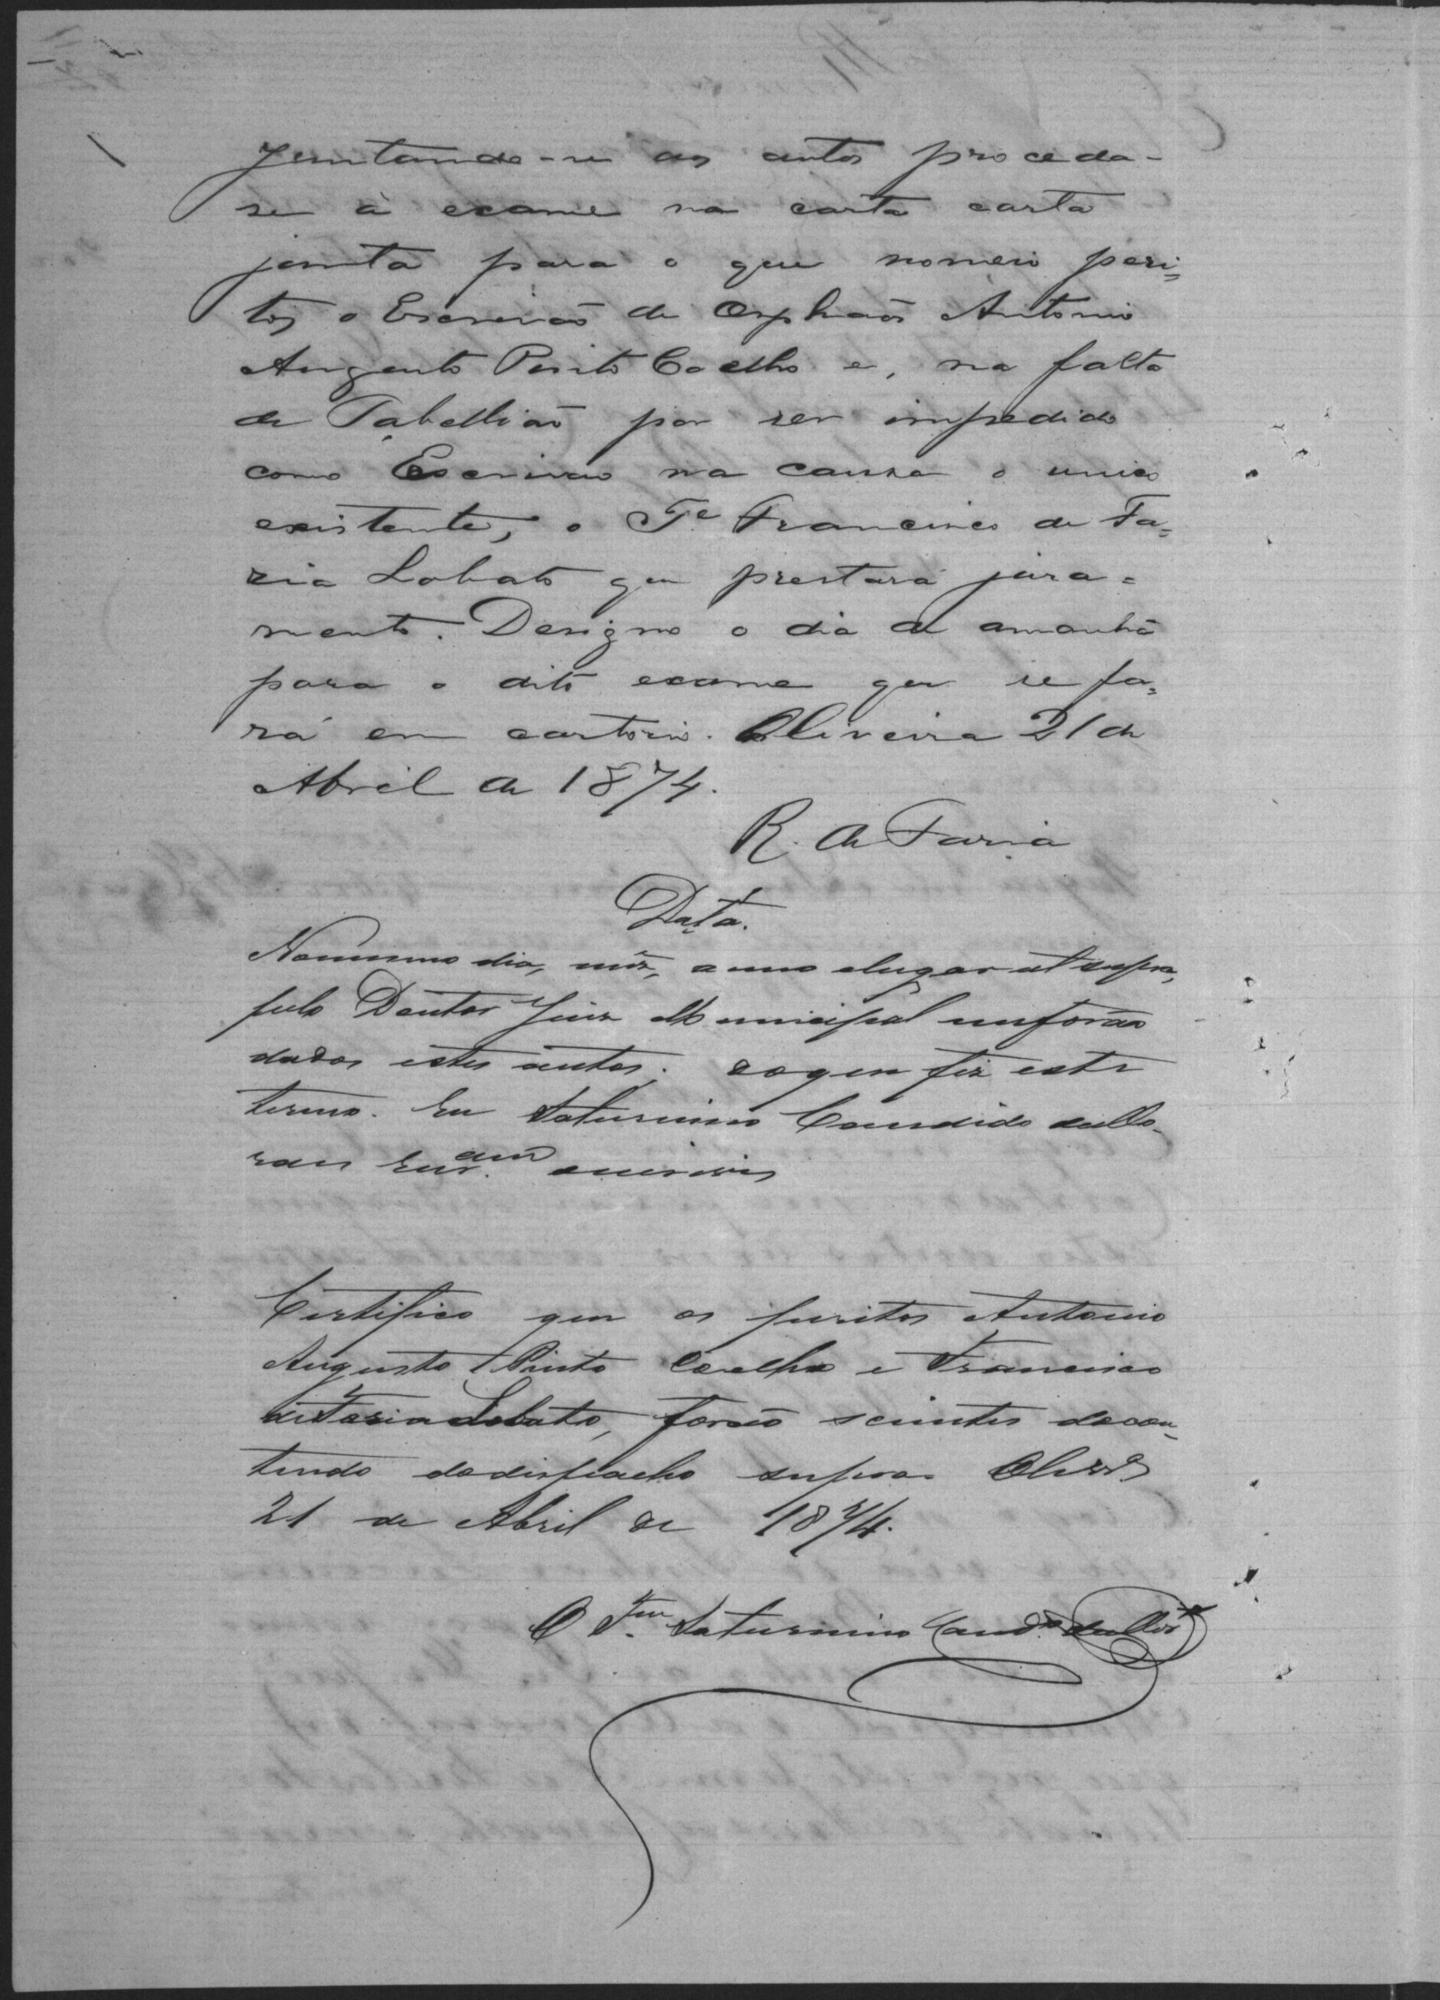 Juntando-se aos autos proceda-
se á exame na carta carta
junta para o que nomeio peri=
tos o Escrivão de Orphaõs Antonio
Augusto Pinto Coelho e, na falta
de Tabellião por ser impedido
como Escrivão na causa o unico
existente, o Te Francisco de Fa=
ria Lobato que prestará jura=
mento. Designo o dia de amanhã
para o dito exame que se fa=
rá em cartorio. Oliveira 21 de
Abril de 1874.
R. de Faria
Data.
No mesmo dia, mêz, anno e lugar ut supra,
pelo Doutor Juiz Municipal me forão
dados estes autos; do que fiz este
termo. Eu Saturnino Candido de Mo-
raes escrevi
Certifico que os peritos Antonio
Augusto Pinto Coelho e Francisco
de Faria Lobato, forão scientes do con-
teudo do despacho supra. Olivra
21 de Abril de 1874.
O Saturnino Cando de